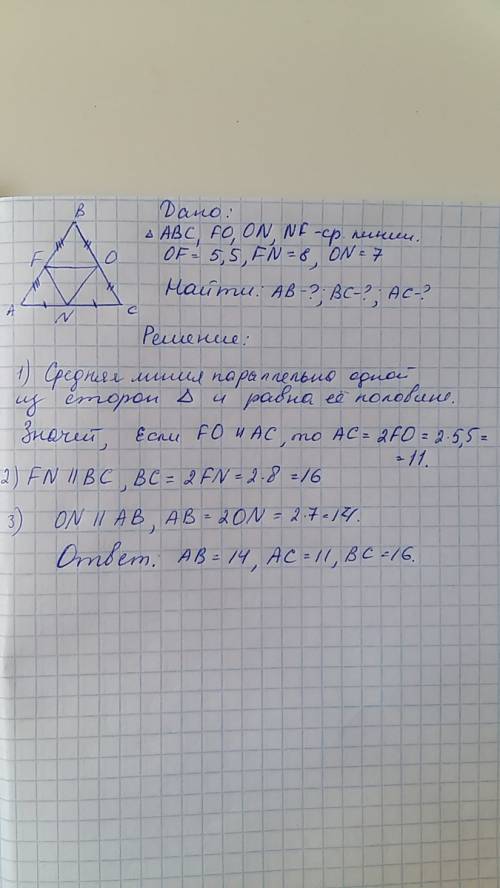 B
F
O
A
N
C
Дано:
△ ABC, FO, ON, NF - ср. линии.
OF = 5,5, FN = 8, ON = 7
Найти: AB-?; BC-?; AC-?
Решение:
1) Средняя линия параллельна одной
из сторон △ и равна её половине.
Значит, если FO || AC, то AC = 2FO = 2·5,5 =
= 11.
2) FN || BC, BC = 2FN = 2·8 = 16
3) ON || AB, AB = 2ON = 2·7 = 14.
Ответ: AB = 14, AC = 11, BC = 16.